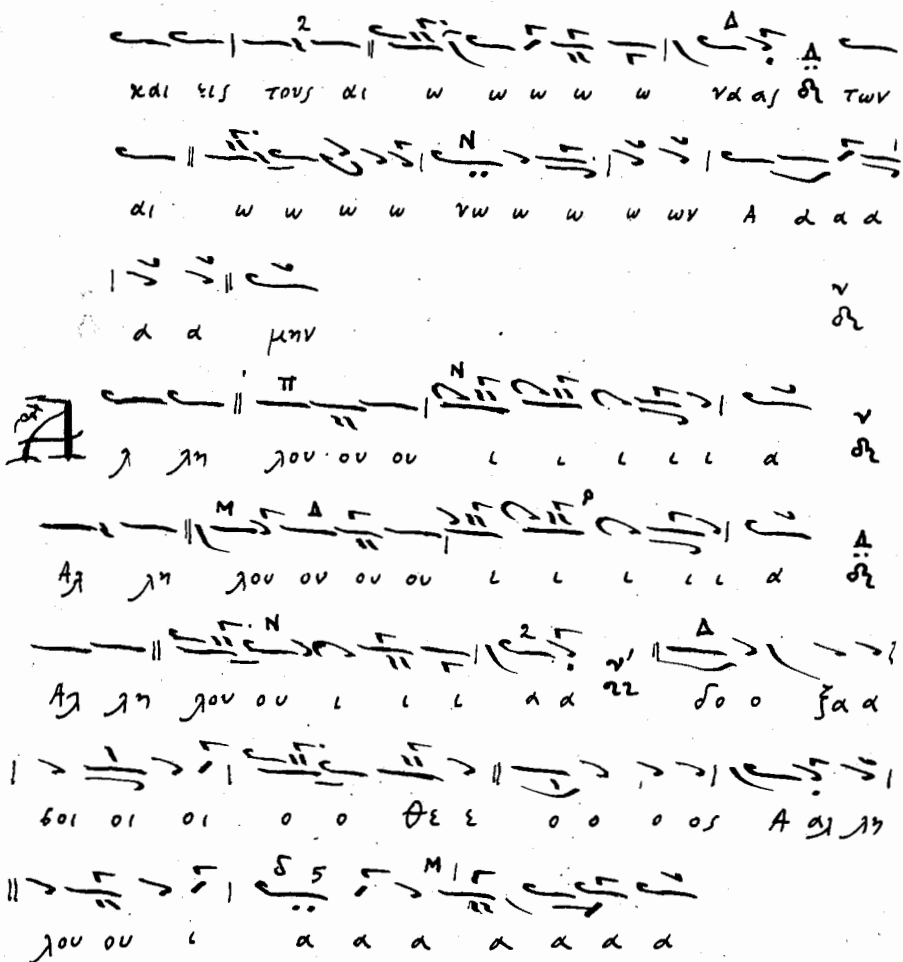 και εις τους αι ω ω ω ω ω να ας των
αι ω ω ω ω νω ω ω ω ων Α α α α
α α μην
Α λ λη λου ου ου ι ι ι ι ι α
Αλ λη λου ου ου ου ι ι ι ι ι α
Αλ λη λου ου ι ι ι α α δο ο ξα α
σοι οι οι ο ο Θε ε ο ο ο ος Α αλ λη
λου ου ι α α α α α α α